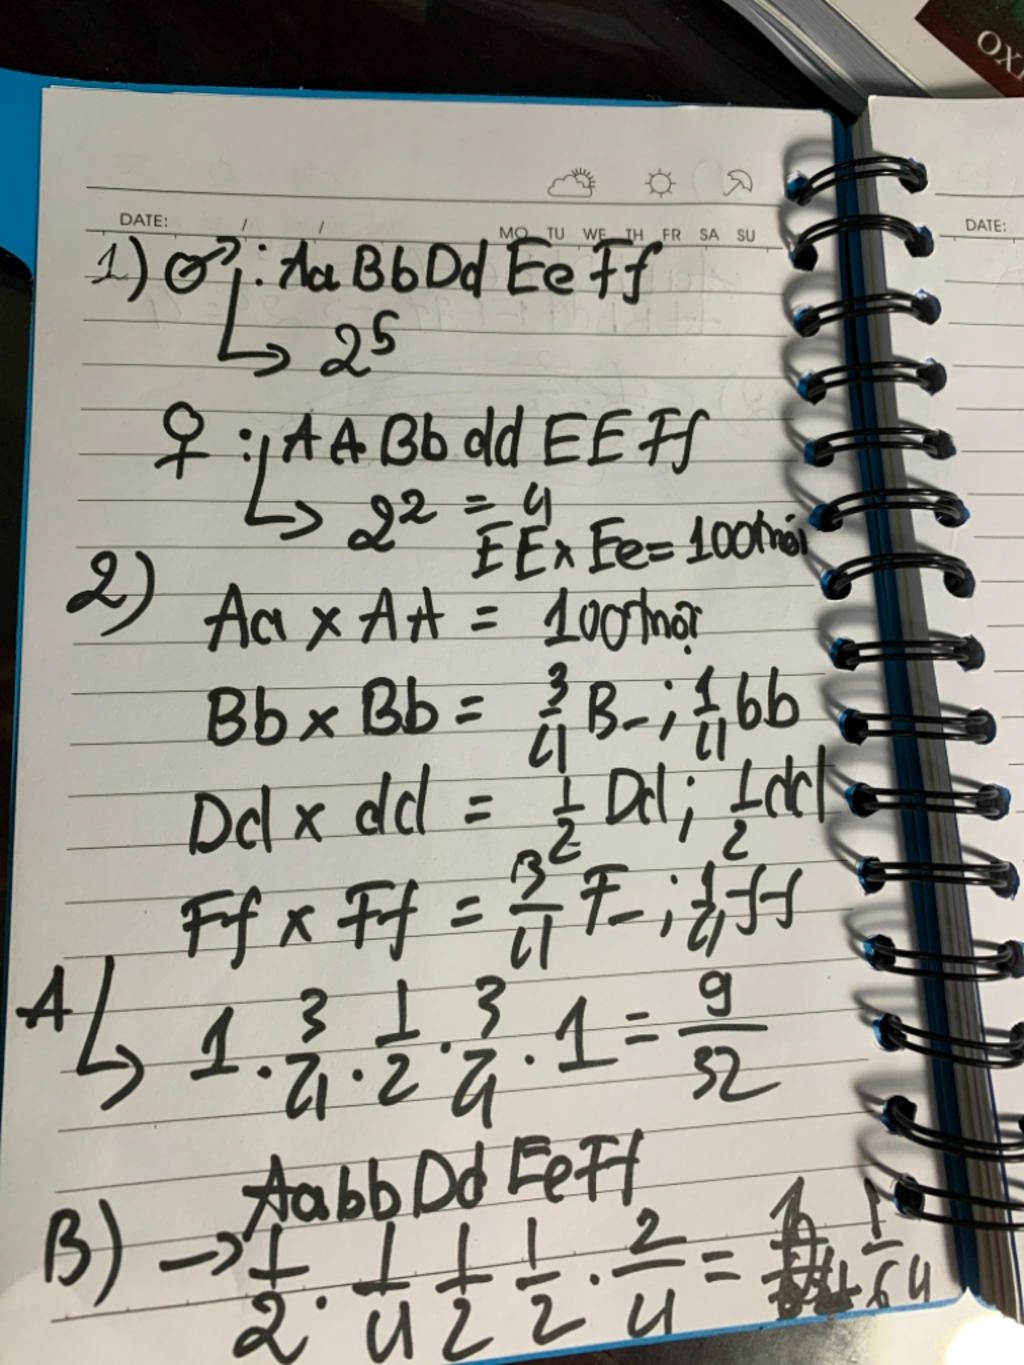 OX
DATE: / /
MO TU WE TH FR SA SU
DATE:
1) ♂: AaBbDdEeFf
↳ 2⁵
♀: AABbddEEFf
↳ 2² = 4
EE x Ee = 100
2)
Aa x AA = 100
Bb x Bb = 3/4 B_; 1/4 bb
Dd x dd = 1/2 Dd; 1/2 dd
Ff x Ff = 3/4 F_; 1/4 ff
A ↳ 1 . 3/4 . 1/2 . 3/4 . 1 = 9/32
AabbDdEeFf
B) → 1/2 . 1/4 1/2 1/2 . 2/4 = 1/64